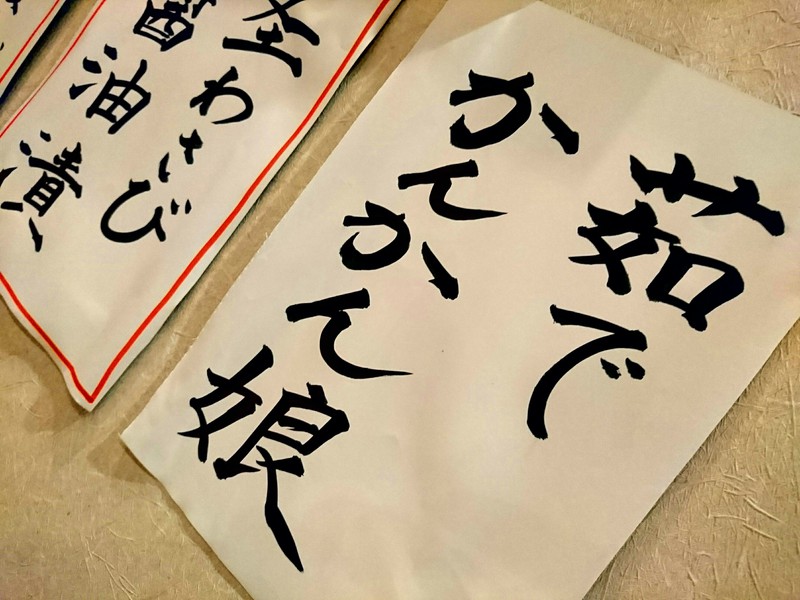 茹で
かんかん娘
茎わさび
醤油漬